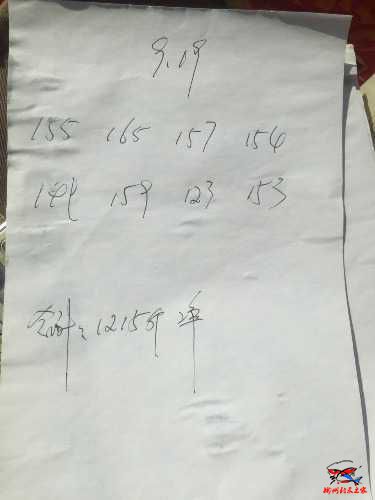 9.09
155 165 157 154
149 159 123 153
合计:1215斤
钓友之家